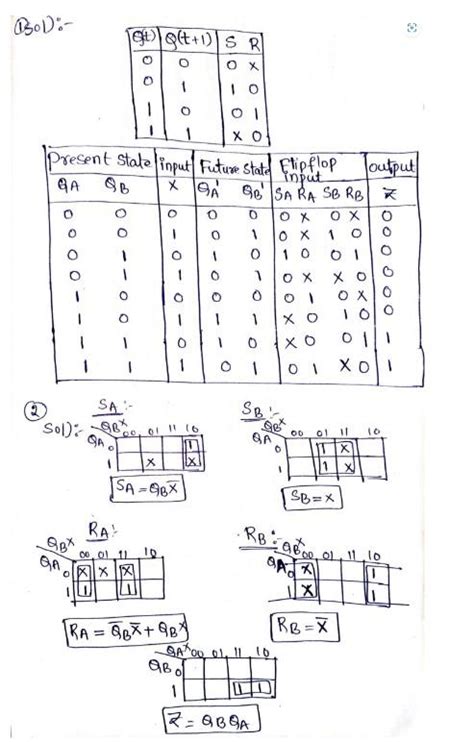 1301):-
Q(t) Q(t+1) S R
0 0 0 X
0 1 1 0
1 0 0 1
1 1 X 0
Present State input Future State Flipflop input output
QA QB X QA' QB' SA RA SB RB Z
0 0 0 0 0 0 X 0 X 0
0 0 1 0 1 0 X 1 0 0
0 1 0 1 0 1 0 0 1 0
0 1 1 0 1 0 X X 0 0
1 0 0 0 0 0 1 0 X 0
1 0 1 1 1 X 0 1 0 0
1 1 0 1 0 X 0 0 1 1
1 1 1 0 1 0 1 X 0 1
②
Sol):-
SA:-
QBX 00 01 11 10
QA 0 1
1 X X
SA = QB X̄
SB:-
QBX 00 01 11 10
QA 0 1 X
1 1 X
SB = X
RA:-
QBX 00 01 11 10
QA 0 X X X
1 1 1
RA = Q̄B X̄ + QB X
RB:-
QBX 00 01 11 10
QA 0 X 1
1 X 1
RB = X̄
QAX 00 01 11 10
QB 0
1 1 1
Z = QB QA